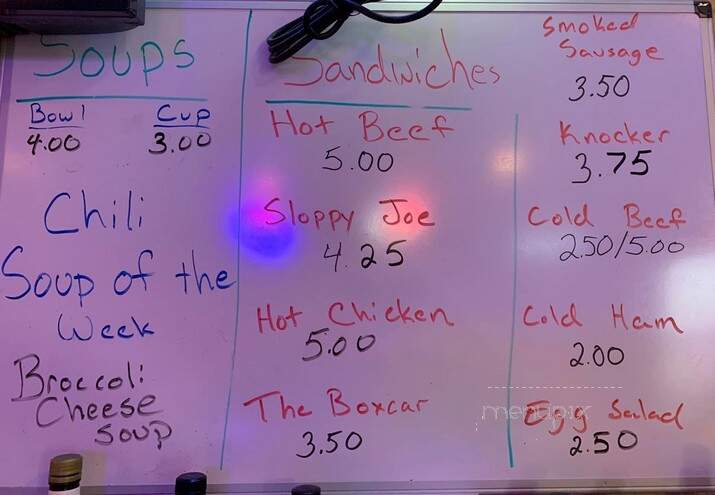 Soups
Bowl Cup
4.00 3.00
Chili
Soup of the
Week
Broccoli
Cheese
Soup
Sandwiches
Hot Beef
5.00
Sloppy Joe
4.25
Hot Chicken
5.00
The Boxcar
3.50
Smoked
Sausage
3.50
Knocker
3.75
Cold Beef
2.50/5.00
Cold Ham
2.00
Egg Salad
2.50
menupix